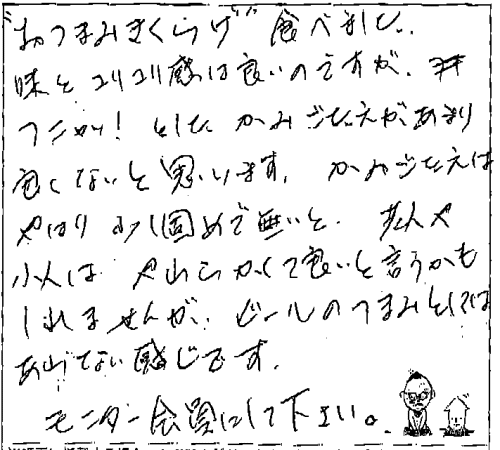 "おつまみきくらげ" 食べました。
味とコリコリ感は良いのですが、
フニャッ!とした かみごたえがあまり
良くないと思います。かみごたえは
やはり少し固めで無いと、老人や
小人は やわらかくて良いと言うかも
しれませんが、ビールのつまみとしては
あわない感じです。
モニター会員にして下さい。